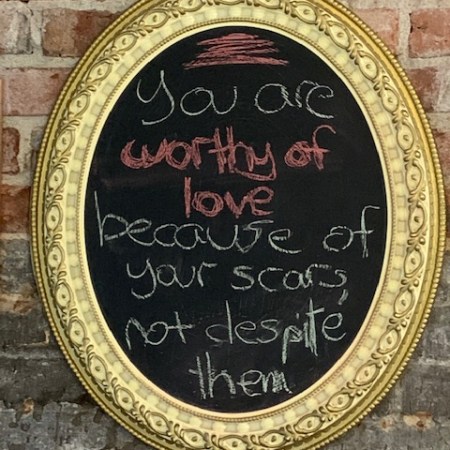 You are
worthy of
love
because of
your scars,
not despite
them